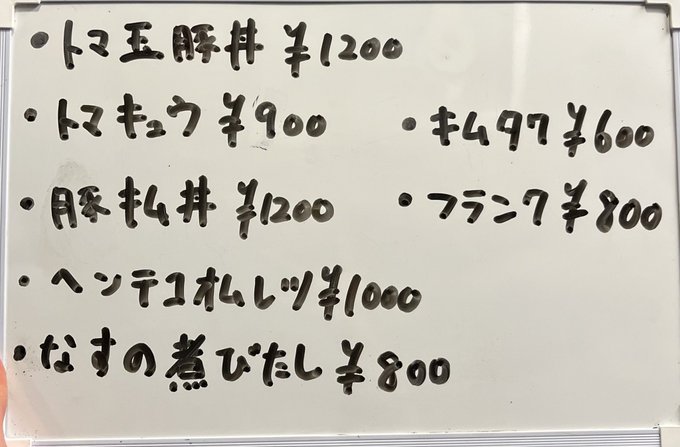 ・トマ玉豚丼 ¥1200
・トマキュウ ¥900
・キムタク ¥600
・豚キム丼 ¥1200
・フランク ¥800
・ヘンテコオムレツ ¥1000
・なすの煮びたし ¥800